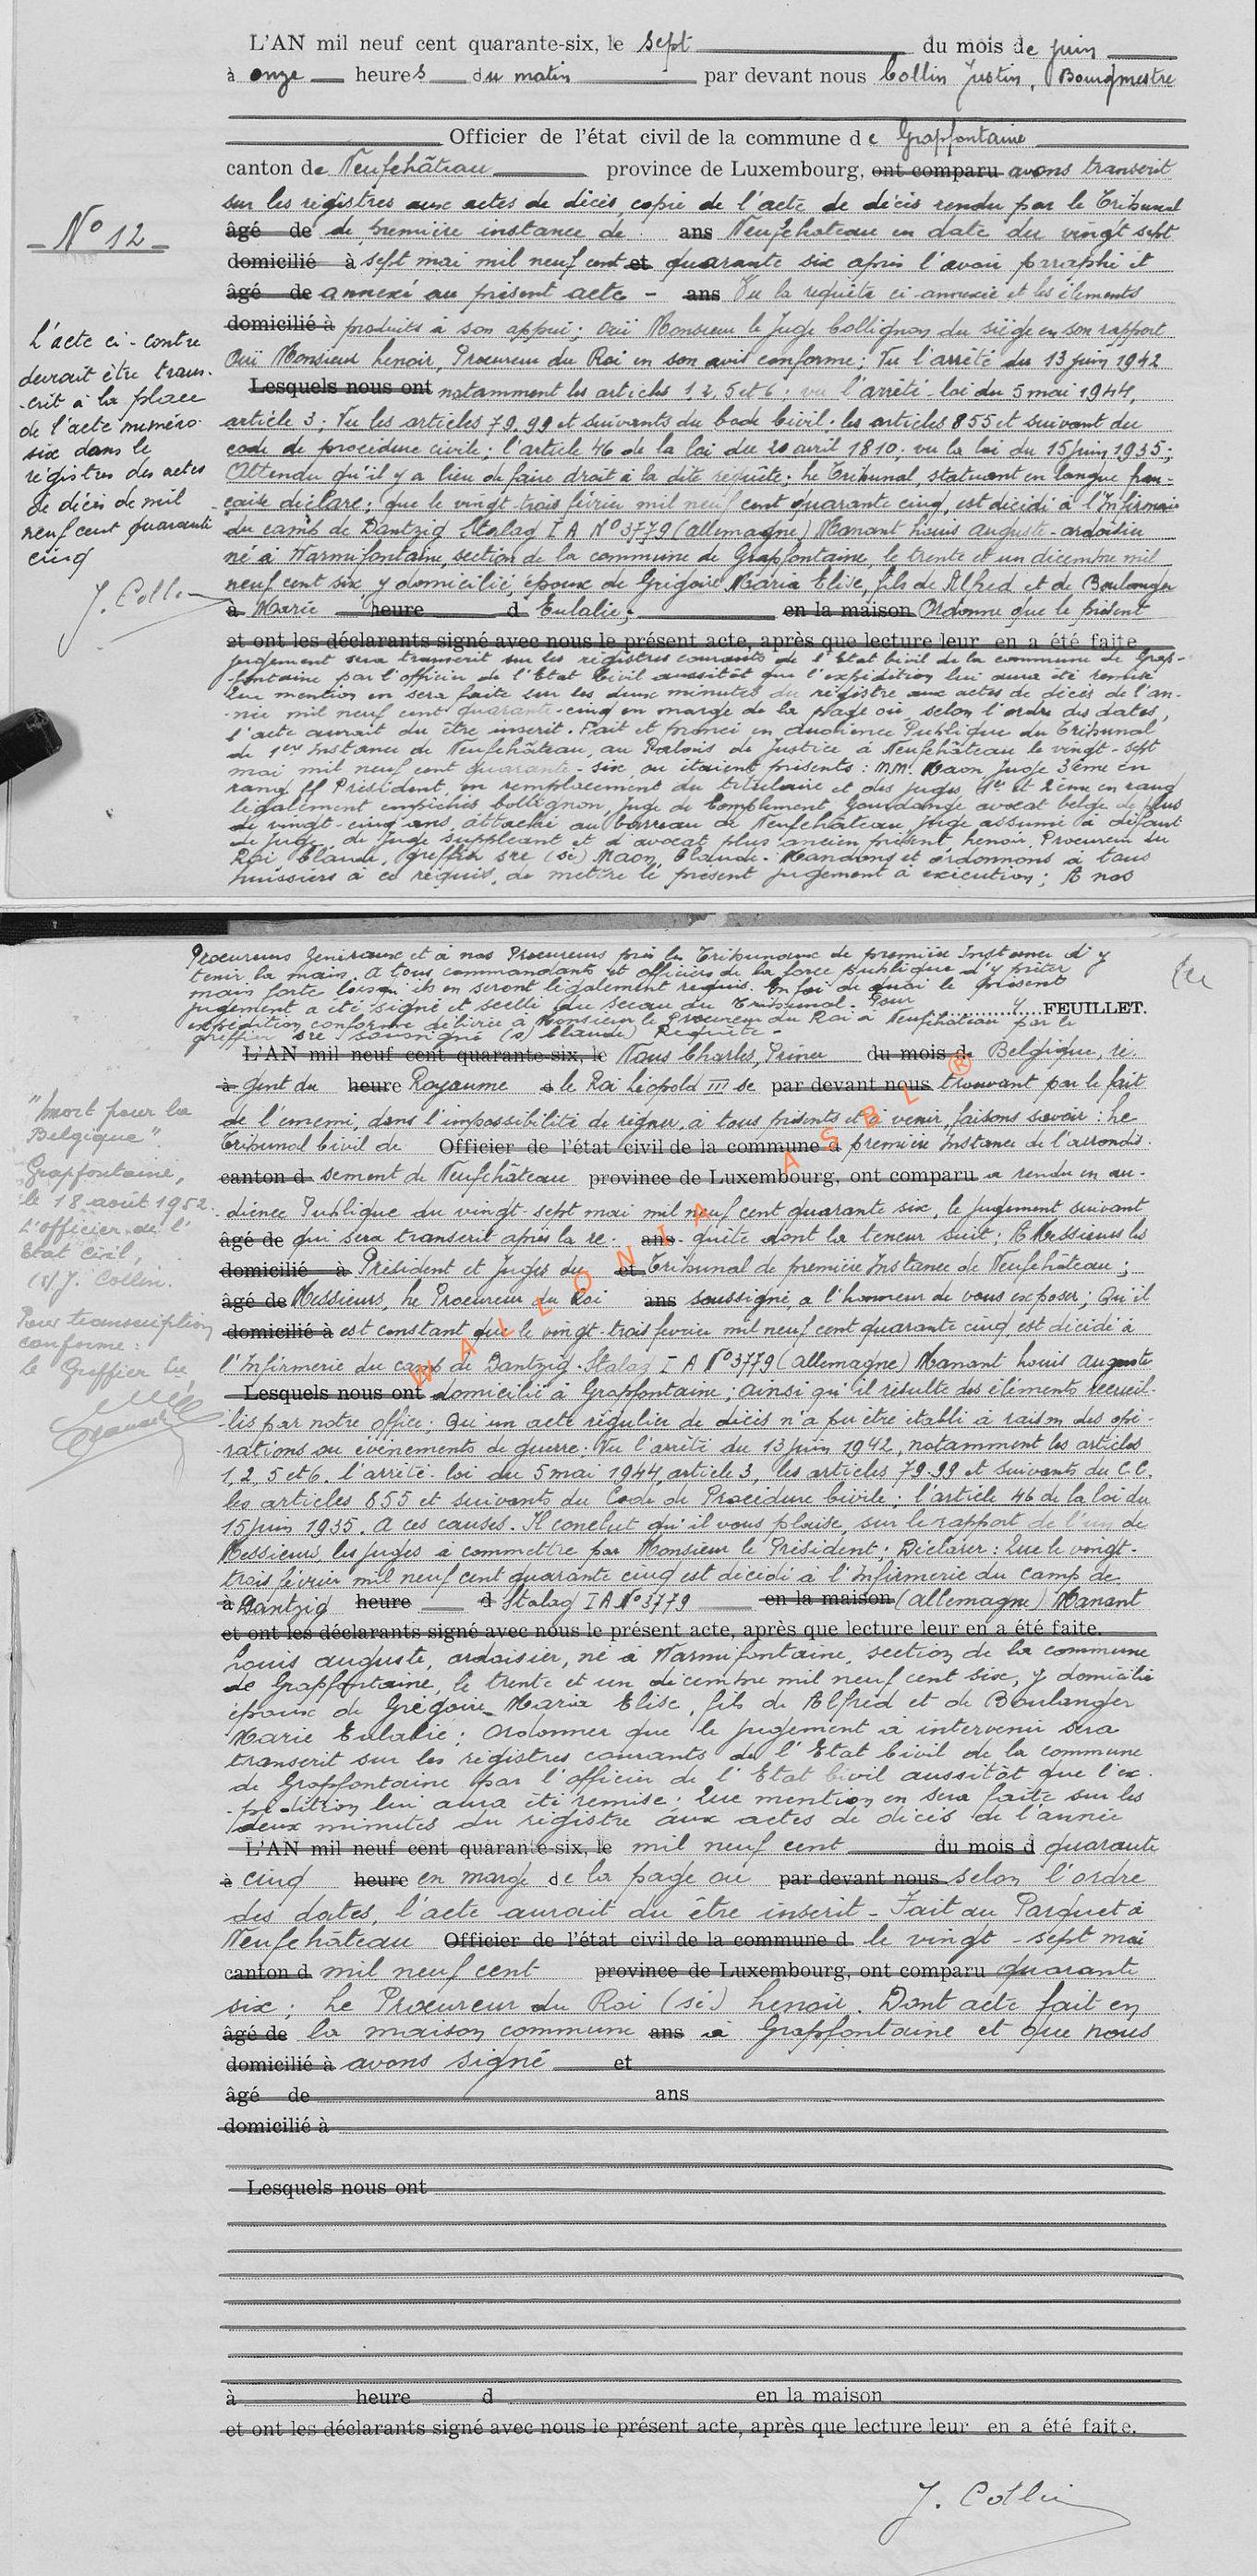 L'AN mil neuf cent quarante-six, le sept du mois de juin
à onze heures du matin par devant nous Collin Justin, Bourgmestre
Officier de l'état civil de la commune de Grapfontaine
canton de Neufchâteau province de Luxembourg, ont comparu avons transcrit
sur les registres aux actes de décès, copie de l'acte de décès rendu par le Tribunal
âgé de de première instance de ans Neufchateau en date du vingt sept
domicilié à sept mai mil neuf cent et quarante six après l'avoir paraphé et
âgé de annexé au présent acte - ans Vu la requête ci-annexée et les éléments
domicilié à produits à son appui; Ouï Monsieur le Juge Collignon du siège en son rapport
Ouï Monsieur Lenoir, Procureur du Roi en son avis conforme; Vu l'arrêté du 13 juin 1942
Lesquels nous ont notamment les articles 1, 2, 5 et 6; vu l'arrêté-loi du 5 mai 1944,
article 3; Vu les articles 79.99 et suivants du Code Civil; les articles 855 et suivant du
code de procédure civile; l'article 46 de la loi du 20 avril 1810; vu la loi du 15 juin 1935;
Attendu qu'il y a lieu de faire droit à la dite requête; Le Tribunal, statuant en langue fran-
çaise déclare; que le vingt-trois février mil neuf cent quarante cinq, est décédé à l'Infirmerie
du camp de Dantzig Stalag I A N° 3779 (allemagne) Manant Louis auguste - ardoisier
né à Warmifontaine, section de la commune de Grapfontaine, le trente et un décembre mil
neuf cent six, y domicilié, époux de Grégoire Maria Elise, fils de Alfred et de Boulanger
à Marie heure d Eulalie; en la maison Ordonne que le présent
et ont les déclarants signé avec nous le présent acte, après que lecture leur en a été faite
jugement sera transcrit sur les registres courants de l'Etat Civil de la commune de Grap-
fontaine par l'officier de l'Etat Civil aussitôt que l'expédition lui aura été remise
Que mention en sera faite sur les deux minutes du registre aux actes de décès de l'an-
née mil neuf cent quarante-cinq en marge de la page où, selon l'ordre des dates,
l'acte aurait du être inscrit. Fait et prononcé en audience Publique du Tribunal
de 1ère Instance de Neufchâteau, au Palais de Justice à Neufchâteau le vingt-sept
mai mil neuf cent quarante-six, ou étaient présents: M.M. Maon Juge 3ème en
rang ff Président, en remplacement du titulaire et des juges 1er et 2ème en rang
légalement empêchés Collignon, juge de Complément Gourdange avocat belge de plus
de vingt-cinq ans, attaché au barreau de Neufchâteau Juge assumé à défaut
de juge, de Juge suppléant et d'avocat plus ancien présent, Lenoir, Procureur du
Roi Claude, greffier sre (sé) Maon, Claude. Mandons et ordonnons à tous
huissiers à ce requis, de mettre le présent jugement à exécution; A nos
N° 12
L'acte ci-contre
devrait être trans-
-crit à la place
de l'acte numéro
six dans le
registres des actes
de décès de mil
neuf cent quarante
cinq
J. Collin
Procureurs Généraux et à nos Procureurs près les Tribunaux de première Instance d'y
tenir la main. A tous commandants et officiers de la force publique d'y prêter
main forte lorsqu'ils en seront légalement requis. En foi de quoi le présent
jugement a été signé et scellé du sceau du Tribunal. Pour
expédition conforme délivrée à Monsieur le Procureur du Roi à Neufchâteau par le
greffier sre soussigné (s) Claude) Requête -
FEUILLET.
L'AN mil neuf cent quarante-six, le Nous Charles, Prince du mois de Belgique, ré-
à gent du heure Royaume d le Roi Léopold III se par devant nous trouvant par le fait
de l'ennemi, dans l'impossibilité de régner, à tous présents et à venir, faisons savoir: Le
Tribunal Civil de Officier de l'état civil de la commune d première Instance de l'arrondis-
canton d sement de Neufchâteau province de Luxembourg, ont comparu a rendu en au-
dience Publique du vingt-sept mai mil neuf cent quarante six, le jugement suivant
âgé de qui sera transcrit après la re- ans quête dont la teneur suit: A Messieurs les
domicilié à Président et Juges du et Tribunal de première Instance de Neufchâteau;
âgé de Messieurs, Le Procureur du Roi ans soussigné, a l'honneur de vous exposer; Qu'il
domicilié à est constant que le vingt-trois février mil neuf cent quarante cinq est décédé à
l'Infirmerie du camp de Dantzig. Stalag I A N° 3779 (allemagne) Manant Louis auguste
Lesquels nous ont domicilié à Grapfontaine; ainsi qu'il résulte des éléments recueil-
-lis par notre office; Qu'un acte régulier de décès n'a pu être établi à raison des opé-
-rations ou événements de guerre; Vu l'arrêté du 13 juin 1942, notamment les articles
1, 2, 5 et 6. l'arrêté-loi du 5 mai 1944, article 3, les articles 79.99 et suivants du C.C.
les articles 855 et suivants du Code de Procédure Civile; l'article 46 de la loi du
15 juin 1935. A ces causes. Il conclut qu'il vous plaise, sur le rapport de l'un de
Messieurs les juges à commettre par Monsieur le Président; Déclarer: Que le vingt-
trois février mil neuf cent quarante cinq est décédé à l'Infirmerie du Camp de
à Dantzig heure d Stalag I A N° 3779 en la maison (allemagne) Manant
et ont les déclarants signé avec nous le présent acte, après que lecture leur en a été faite.
Louis auguste, ardoisier, né à Warmifontaine, section de la commune
de Grapfontaine, le trente et un décembre mil neuf cent six, y domicilié
époux de Grégoire Maria Elise, fils de Alfred et de Boulanger
Marie Eulalie; Ordonner que le jugement à intervenir sera
transcrit sur les registres courants de l'Etat Civil de la commune
de Grapfontaine par l'officier de l'Etat Civil aussitôt que l'ex-
-pédition lui aura été remise: Que mention en sera faite sur les
deux minutes du registre aux actes de décès de l'année
L'AN mil neuf cent quarante-six, le mil neuf cent du mois d quarante
à cinq heure en marge de la page ou par devant nous selon l'ordre
des dates, l'acte aurait du être inscrit - Fait au Parquet à
Neufchâteau Officier de l'état civil de la commune d le vingt-sept mai
canton d mil neuf cent province de Luxembourg, ont comparu quarante
six; Le Procureur du Roi (sé) Lenoir. Dont acte fait en
âgé de la maison commune ans à Grapfontaine et que nous
domicilié à avons signé et
âgé de ans
domicilié à
Lesquels nous ont
à heure d en la maison
et ont les déclarants signé avec nous le présent acte, après que lecture leur en a été faite.
J. Collin
"Mort pour la
Belgique".
Grapfontaine,
le 18 août 1952.
L'officier de l'
Etat Civil,
(s) J. Collin.
Pour transcription
conforme:
Le Greffier
WALLONIA ASBL ®